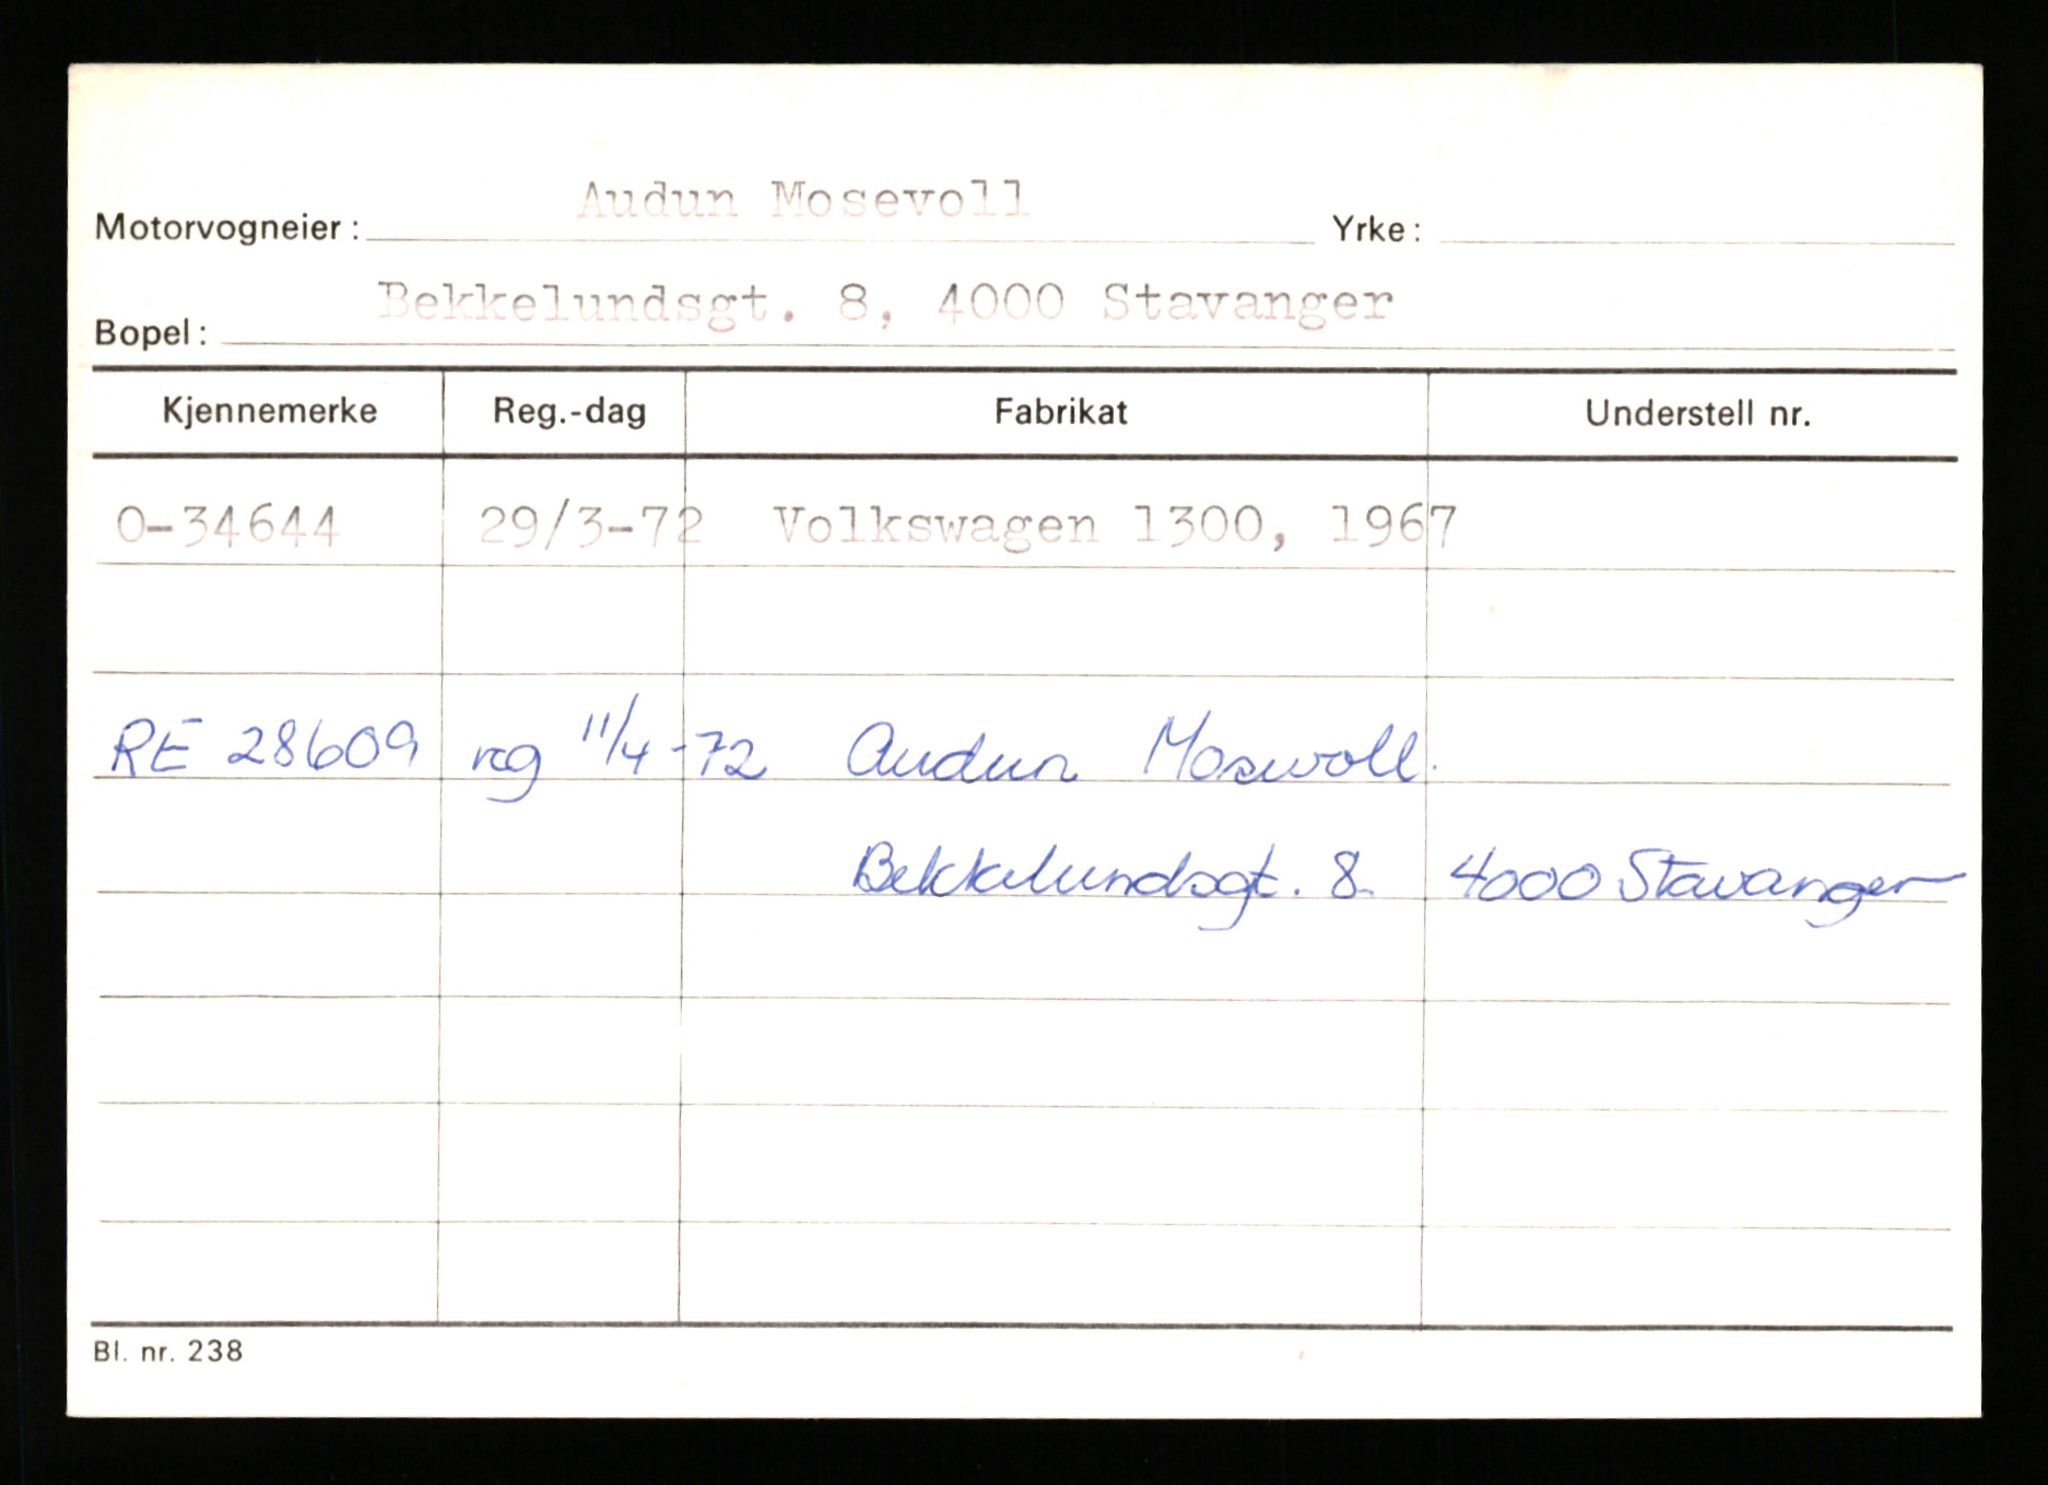 Motorvogneier: Audun Mosevoll Yrke:
Bopel: Bekkelundsgt. 8, 4000 Stavanger
Kjennemerke Reg.-dag Fabrikat Understell nr.
O-34644 29/3-72 Volkswagen 1300, 1967
RE 28609 reg 11/4-72 Audun Mosevoll.
Bekkelundsgt. 8. 4000 Stavanger
Bl. nr. 238